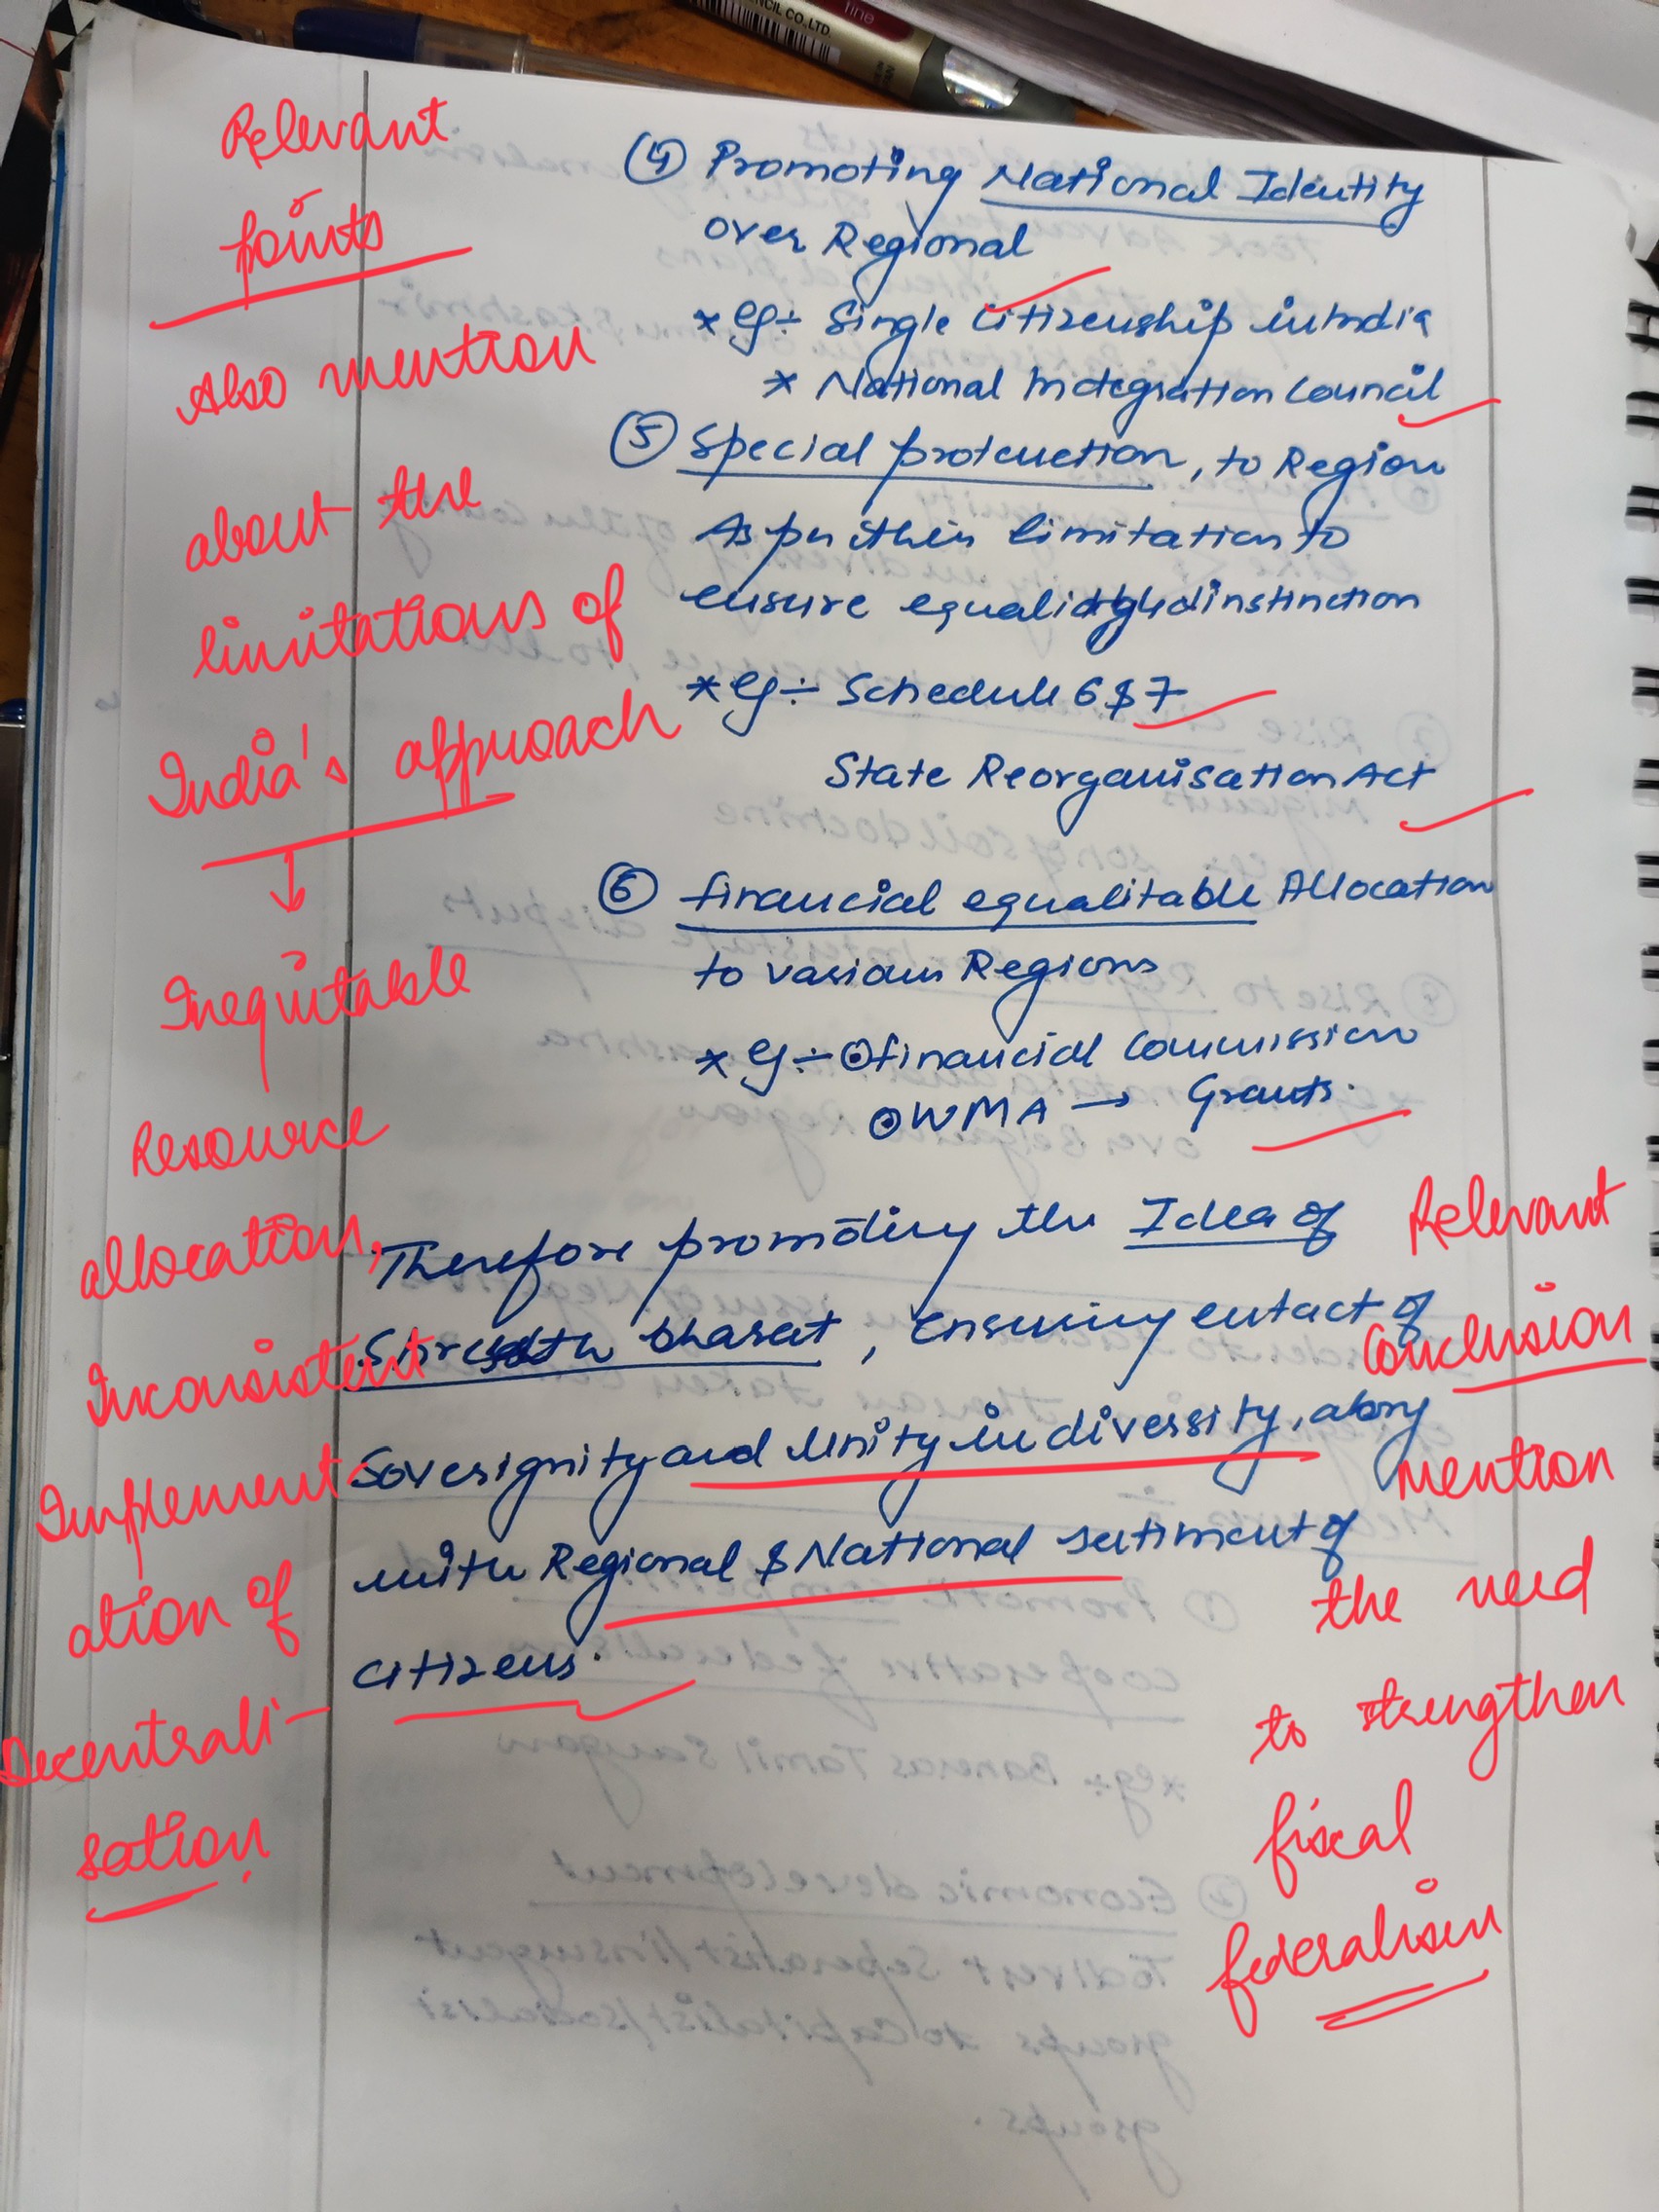 NCIL CO.,LTD.
fine
Relevant
points
Also mention
about the
limitations of
India's approach
↓
Inequitable
Resource
allocation,
Inconsistent
Implement
ation of
Decentrali-
sation.
④ Promoting National Identity
over Regional
* eg÷ Single Citizenship in India
* National Integration Council
⑤ Special protcuection, to Region
As per their limitation to
ensure equality & dinstinction
* eg÷ Schedule 6 & 7
State Reorganisation Act
⑥ financial equalitable Allocation
to various Regions
* eg÷ ⊙ financial Commission
⊙ WMA → Grants.
Therefore promoting the Idea of
Shresth bharat, Ensuring entact of
Soverignity and Unity in diversity, along
with Regional & National sentiment of
citizens.
Relevant
Conclusion
mention
the need
to strengthen
fiscal
federalism